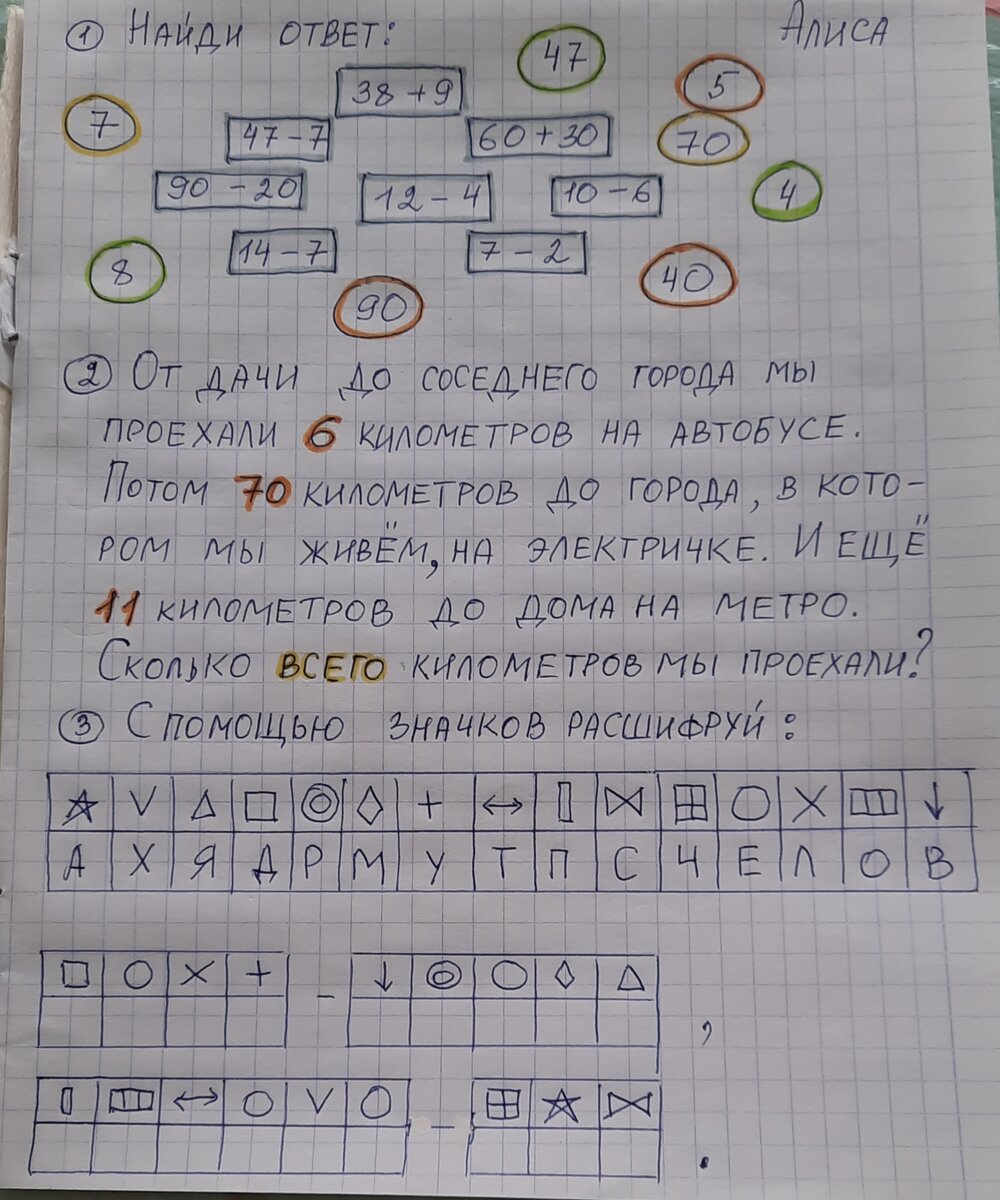 ① НАЙДИ ОТВЕТ: АЛИСА
47
38 + 9 5
7 47 - 7 60 + 30 70
90 - 20 12 - 4 10 - 6 4
8 14 - 7 7 - 2 40
90
② ОТ ДАЧИ ДО СОСЕДНЕГО ГОРОДА МЫ
ПРОЕХАЛИ 6 КИЛОМЕТРОВ НА АВТОБУСЕ.
ПОТОМ 70 КИЛОМЕТРОВ ДО ГОРОДА, В КОТО-
РОМ МЫ ЖИВЁМ, НА ЭЛЕКТРИЧКЕ. И ЕЩЁ
11 КИЛОМЕТРОВ ДО ДОМА НА МЕТРО.
СКОЛЬКО ВСЕГО КИЛОМЕТРОВ МЫ ПРОЕХАЛИ?
③ С ПОМОЩЬЮ ЗНАЧКОВ РАСШИФРУЙ:
А Х Я Д Р М У Т П С Ч Е Л О В